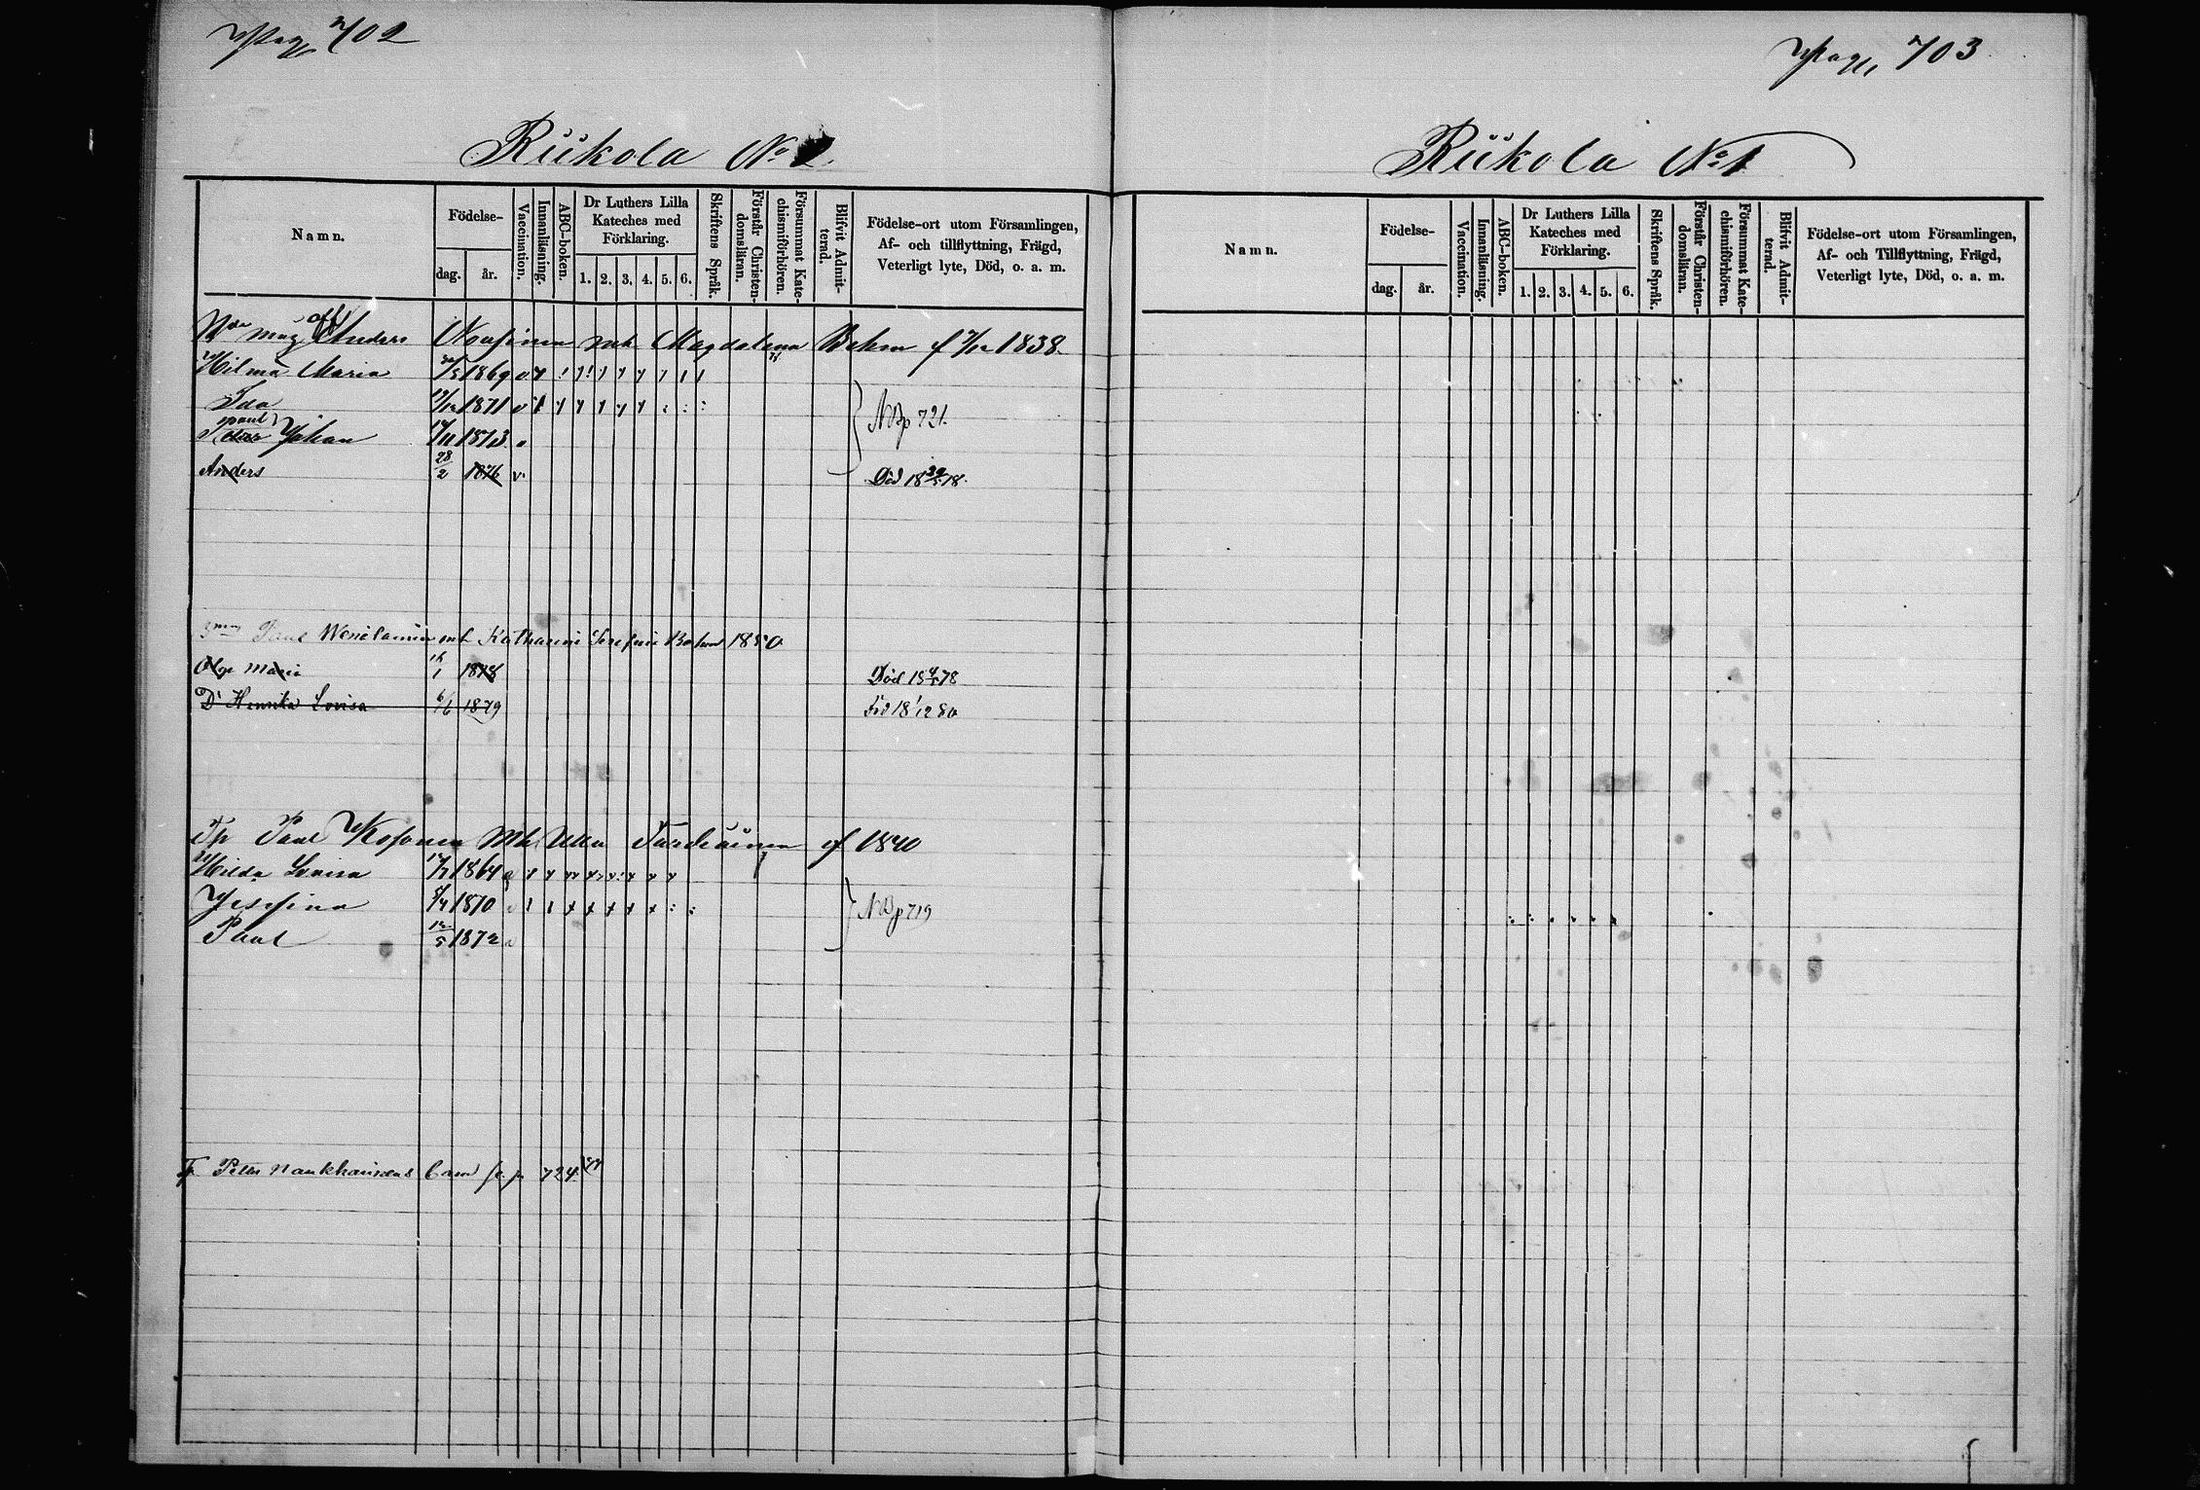 Pag 702
Riikola No 1.
Namn.
Födelse-
dag.
år.
Vaccination.
Innanläsning.
ABC-boken.
Dr Luthers Lilla
Kateches med
Förklaring.
1. 2. 3. 4. 5. 6.
Skriftens Språk.
Förstår Christen-
domsläran.
Försummat Kate-
chismiförhören.
Blifvit Admit-
terad.
Födelse-ort utom Församlingen,
Af- och tillflyttning, Frägd,
Veterligt lyte, Död, o. a. m.
Anders mh Magdalena f 1838.
Hilma Maria 1869
Ida 1871
Paul
Johan 1873
NB p 721.
Anders 28/2 1876 v Död 18 78.
Paul mh Katharina 1850
Maria 1878 Död 18 78
D Henrika Lovisa 6/6 1879 Död 18 1/12 80
Paul Kosonen mh Ulla f 1840
Hilda Lovisa 1864
Josefina 1870
NB p 719
Paul 1872
Peter Barn p 724
Pag 703
Riikola No 1
Namn.
Födelse-
dag.
år.
Vaccination.
Innanläsning.
ABC-boken.
Dr Luthers Lilla
Kateches med
Förklaring.
1. 2. 3. 4. 5. 6.
Skriftens Språk.
Förstår Christen-
domsläran.
Försummat Kate-
chismiförhören.
Blifvit Admit-
terad.
Födelse-ort utom Församlingen,
Af- och Tillflyttning, Frägd,
Veterligt lyte, Död, o. a. m.